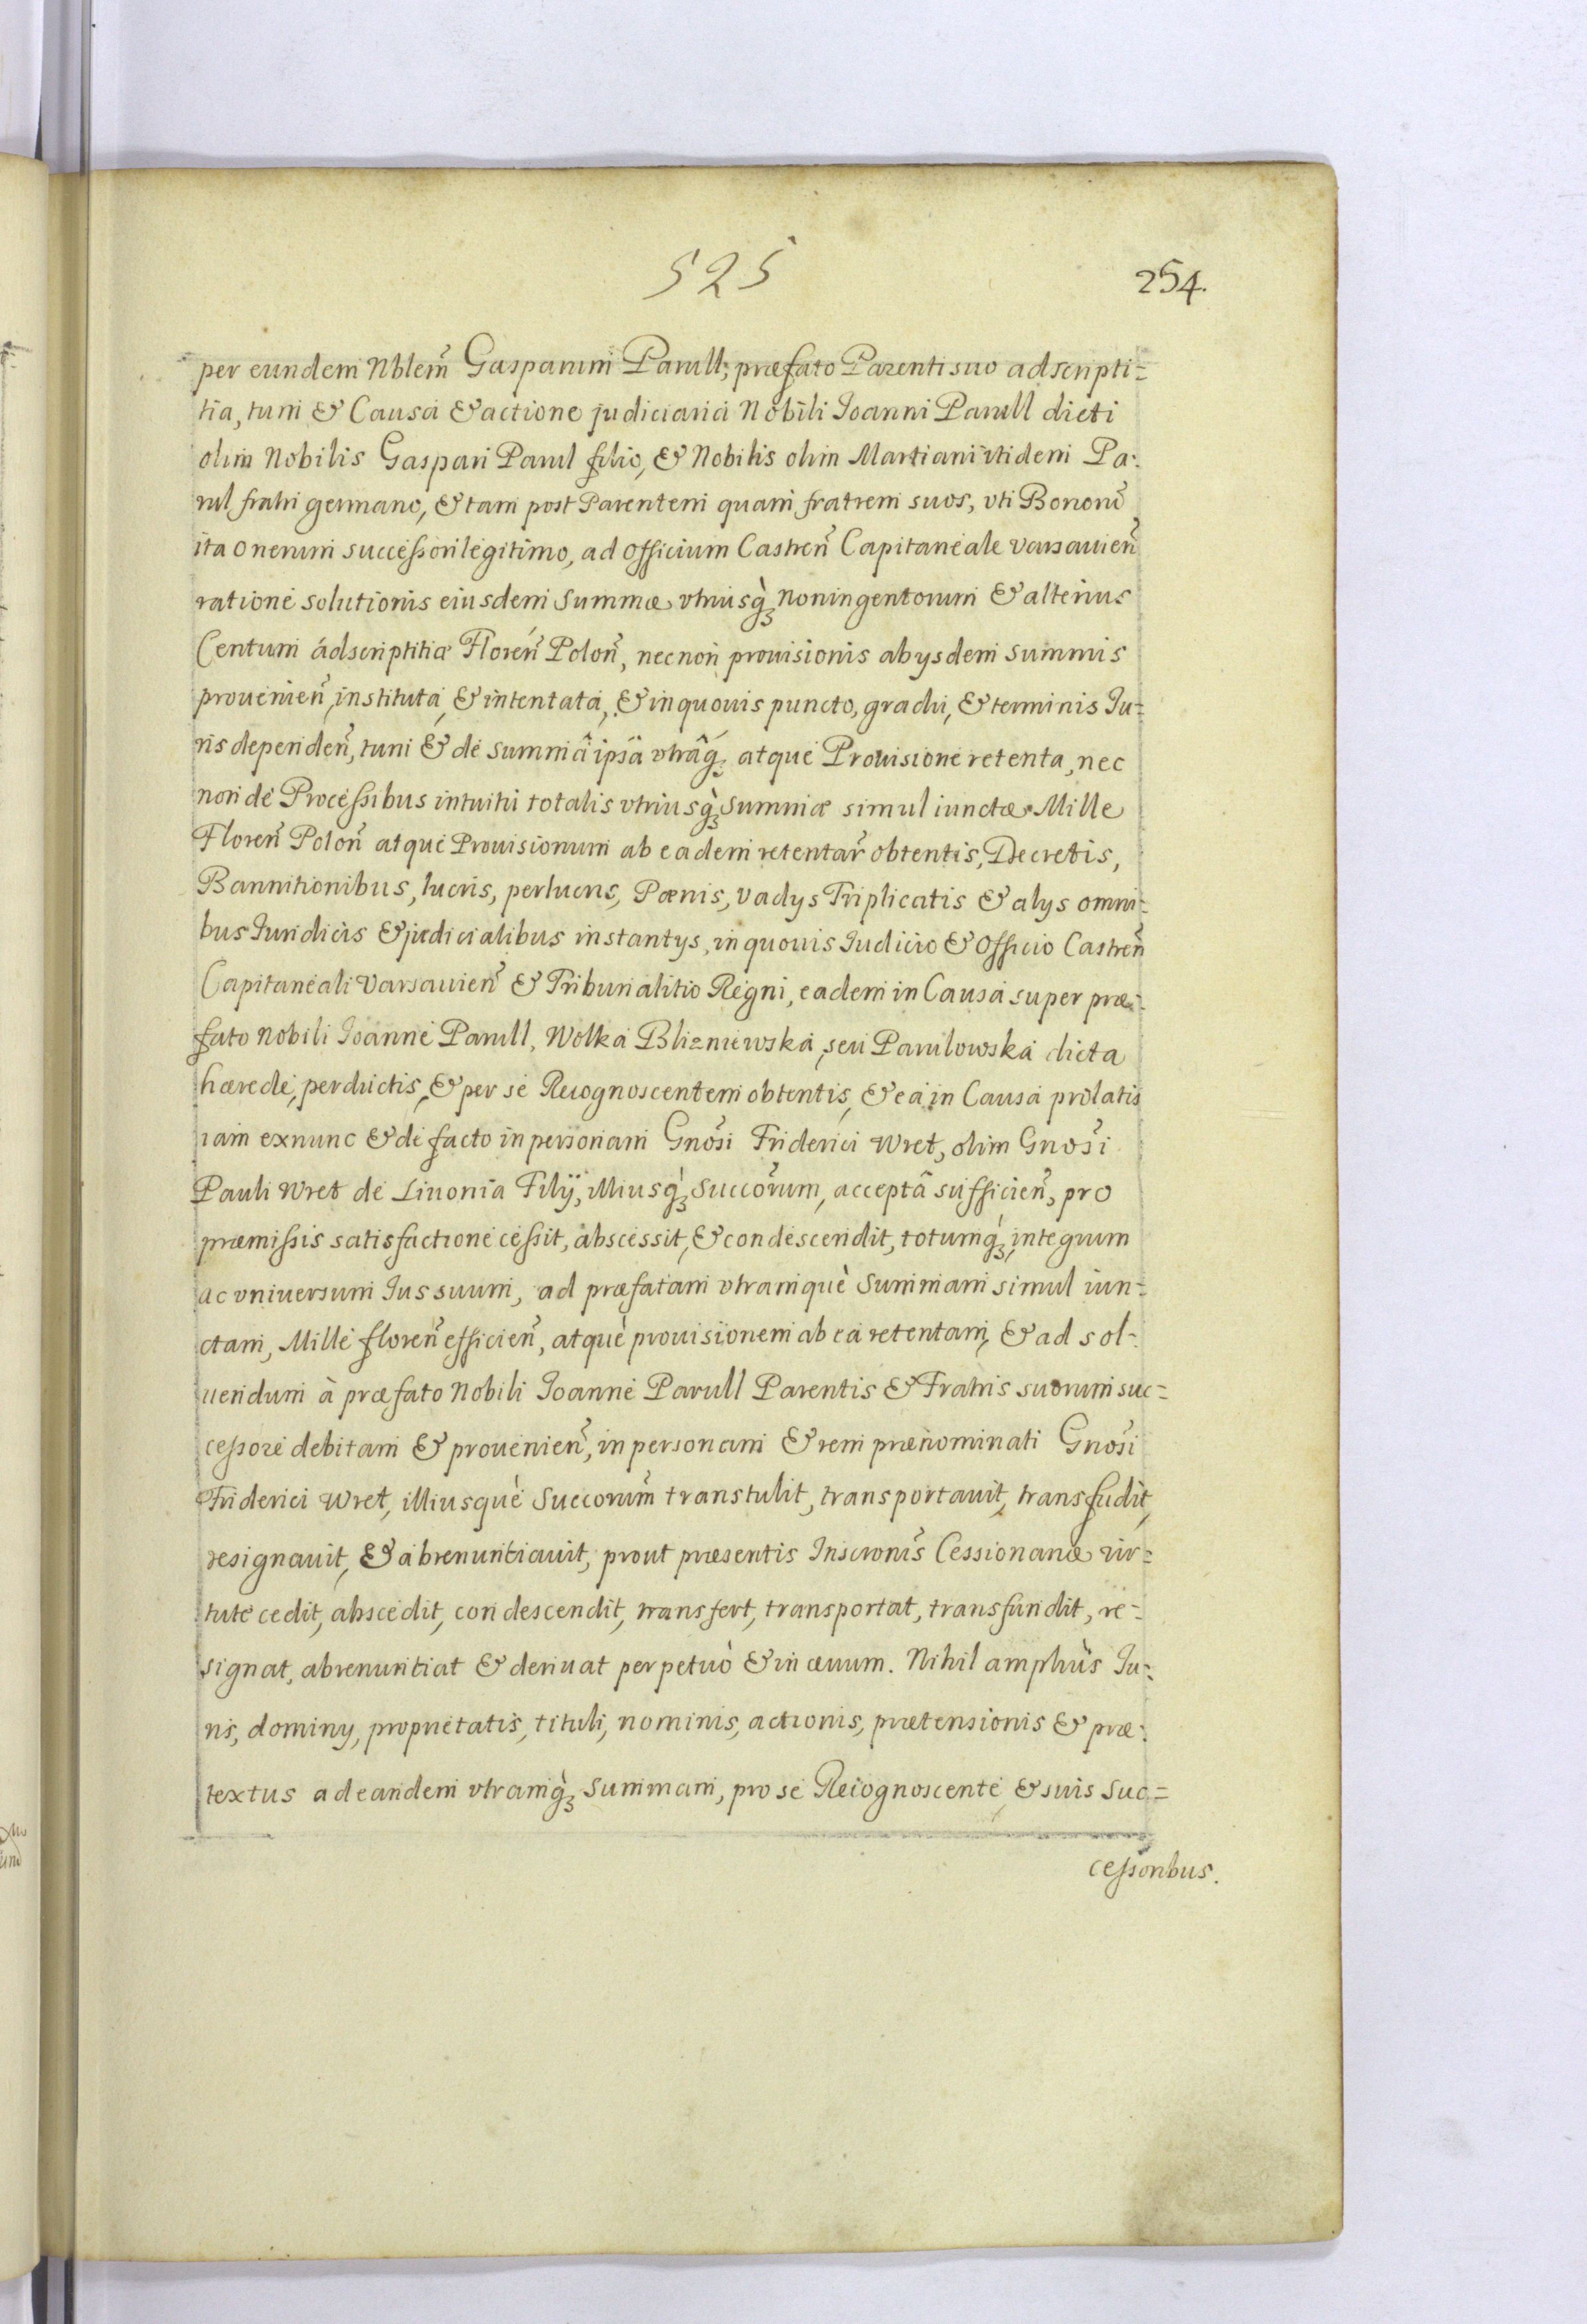 525
254.
per eundem Nblem̃ Gasparum Parull, præfato Parenti suo adscripti=
tia, tum & Causa & actione judiciaria Nobili Joanni Parull dicti
olim Nobilis Gaspari Parul filio, & Nobilis olim Martiani itidem Pa:
rul fratri germano, & tam post Parentem quam fratrem suos, vti Bonorũ
ita onerum successori legitimo, ad Officium Castren̄ Capitaneale Varsauien̄
ratione solutionis eiusdem Summæ vtriusq̀ꝫ Noningentorum & alterius
Centum adscriptitiæ Floren̄ Polon̄, nec non prouisionis ab ysdem summis
prouenien̄, instituta, & intentata, & in quouis puncto, gradu, & terminis Ju=
ris dependen̄, tum & de summâ ipsâ vtrâq̀ꝫ atque Prouisione retenta, nec
non de Processibus intuitu totalis vtriusq̀ꝫ Summæ simul iunctæ Mille
Floren̄ Polon̄ atque Prouisionum ab eadem retentar̃ obtentis, Decretis,
Bannitionibus, lucris, perlucris, Pœnis, Vadys Triplicatis & alys omni=
bus Juridicis & judicialibus instantys, in quouis Judicio & Officio Castren̄
Capitaneali Varsauien̄ & Tribunalitio Regni, eadem in Causa super præ=
fato Nobili Joanne Parull, Wolka Blizniewska, seu Parulowska dicta
hærede, perductis, & per se Recognoscentem obtentis, & ea in Causa prolatis
iam exnunc & de facto in personam Gnõsi Friderici Wret, olim Gnõsi
Pauli Wret de Liuonia Filÿ, illiusq̀ꝫ Succõrum, acceptâ sufficien̄, pro
præmissis satisfactione cessit, abscessit, & condescendit, totumq̀ꝫ, integrum
ac vniversum Jus suum, ad præfatam vtramquè Summam simul iun=
ctam, Mille floren̄ efficien̄, atquè prouisionem ab ea retentam, & ad sol=
uendum à præfato Nobili Joanne Parull Parentis & Fratris suorum suc=
cessore debitam & prouenien̄, in personam & rem prænominati Gnõsi
Friderici Wret, illiusquè Succorum̃ transtulit, transportauit, transfudit,
resignauit, & abrenuntiauit, prout præsentis Inscronis̃ Cessionariæ vir=
tute cedit, abscedit, condescendit, transfert, transportat, transfundit, re=
signat, abrenuntiat & deriuat perpetuò & in æuum. Nihil ampliùs Ju=
ris, dominy, proprietatis, tituli, nominis, actionis, prætensionis & præ:
textus ad eandem vtramq̀ꝫ Summam, pro se Recognoscente & suis suc=
cessoribus.